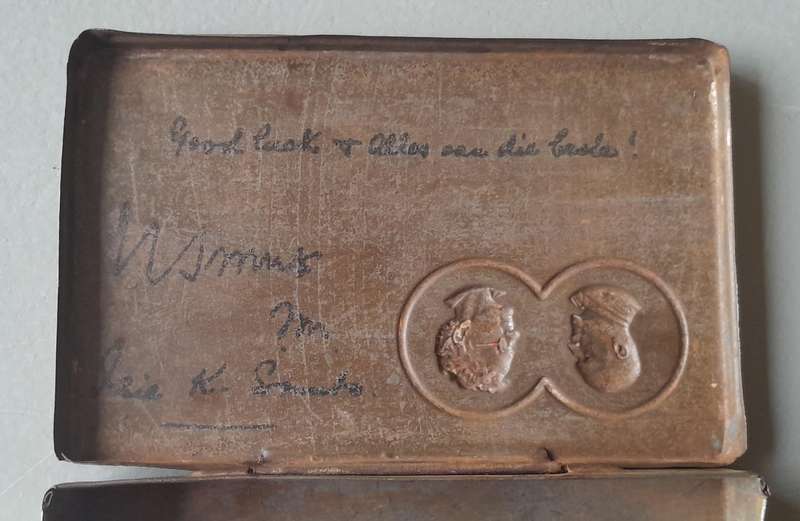 Good luck & Alles van die beste!
JC Smuts
en
Isie K Smuts